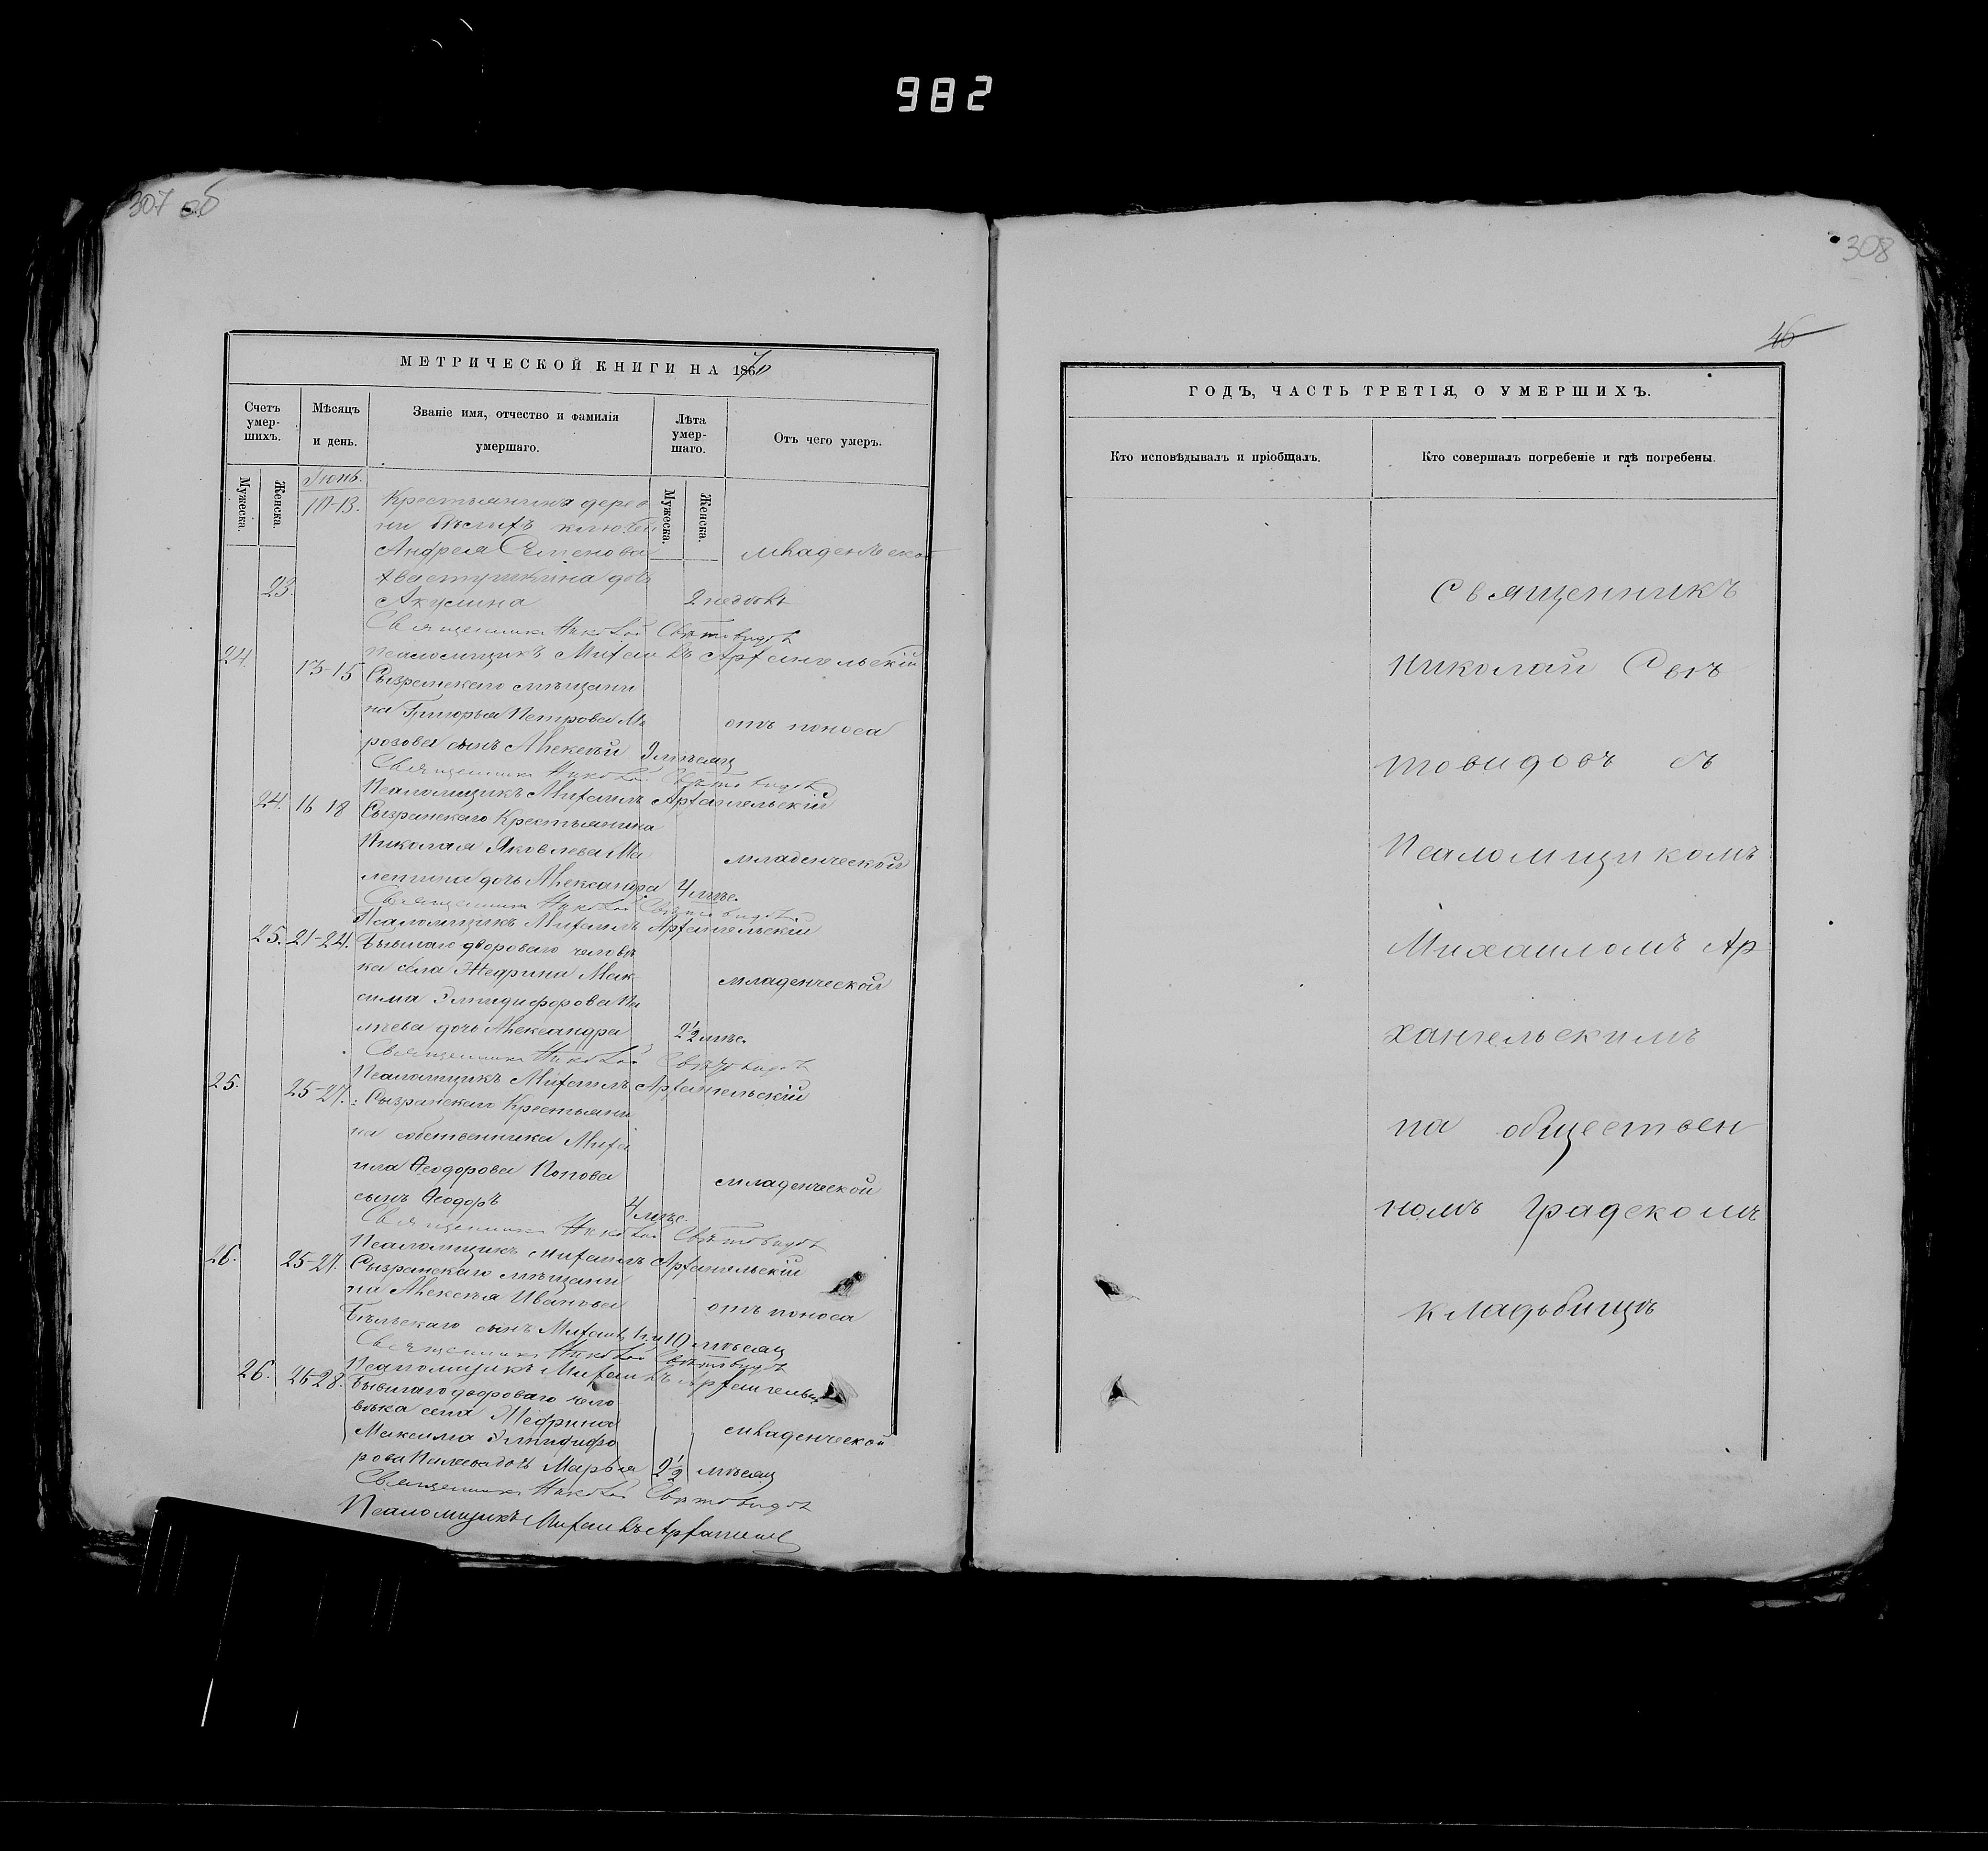 982
307 об
МЕТРИЧЕСКОЙ КНИГИ НА 1870
Счетъ умер-шихъ.
Мѣсяцъ и день.
Званіе имя, отчество и фамилія умершаго.
Лѣта умер-шаго.
Отъ чего умеръ.
Мужеска.
Женска.
Мужеска.
Женска.
Іюнь.
23.
Крестьянина дерев
ни ключей
Андрея Семенова
дочь
Акулина
2 недѣль
младенческой
Священникъ Николай Свѣтовидовъ
Псаломщикъ Михаилъ Архангельскій
24
13-15
Сызранскаго мѣщани
на Григорья Петрова Мо
розова сынъ Алексѣй
3 мѣсяц
отъ поноса
Священникъ Николай Свѣтовидовъ
Псаломщикъ Михаилъ Архангельскій
24.
16 18
Сызранскаго Крестьянина
Николая Яковлева Ма
дочь Александра
4 мѣс.
младенческой
Священникъ Николай Свѣтовидовъ
Псаломщикъ Михаилъ Архангельскій
25.
21-24.
Бывшаго двороваго человѣ
ка села Жедрина Мак
сима Элпидифорова Па
дочь Александра
2½ мѣс.
младенческой
Священникъ Николай Свѣтовидовъ
Псаломщикъ Михаилъ Архангельскій
25.
25-27.
Сызранскаго Крестьяни
на собственника Миха
ила Ѳеодорова Попова
сынъ Ѳеодоръ
4 мѣс.
младенческой
Священникъ Николай Свѣтовидовъ
Псаломщикъ Михаилъ Архангельскій
26.
25-27.
Сызранскаго мѣщани
на Алексѣя Иванова
Бѣльскаго сынъ Михаилъ
1 г. и 10 мѣсяц
отъ поноса
Священникъ Николай Свѣтовидовъ
Псаломщикъ Михаилъ Архангельскій
26.
26-28.
Бывшаго двороваго чело
вѣка села Жедрина
Максима Элпидифо
рова дочь Марья
2½ мѣсяц
младенческой
Священникъ Николай Свѣтовидовъ
Псаломщикъ Михаилъ Архангел
308
46
ГОДЪ, ЧАСТЬ ТРЕТІЯ, О УМЕРШИХЪ.
Кто исповѣдывалъ и пріобщалъ.
Кто совершалъ погребеніе и гдѣ погребены.
Священникъ
Николай Свѣ
товидовъ съ
Псаломщикомъ
Михаиломъ Ар
хангельскимъ
на обществен
номъ градскомъ
кладьбищѣ